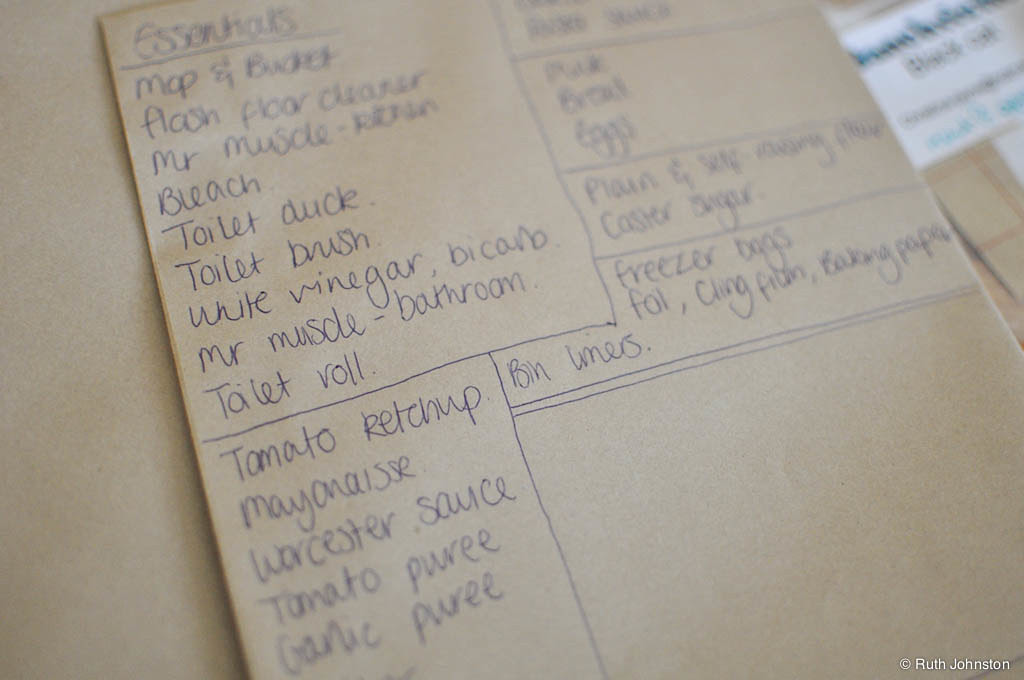 Essentials
Mop & Bucket
flash floor cleaner
Mr muscle - kitchen
Bleach
Toilet duck.
Toilet brush.
White vinegar, bicarb.
Mr muscle - bathroom.
Toilet roll.
Tomato ketchup.
Mayonaisse.
Worcester sauce
Tomato puree
Garlic puree
Pasta sauce
Milk
Bread
Eggs
Plain & self-raising flour
Caster sugar.
freezer bags
foil, Cling film, Baking paper
Bin liners.
Black
© Ruth Johnston